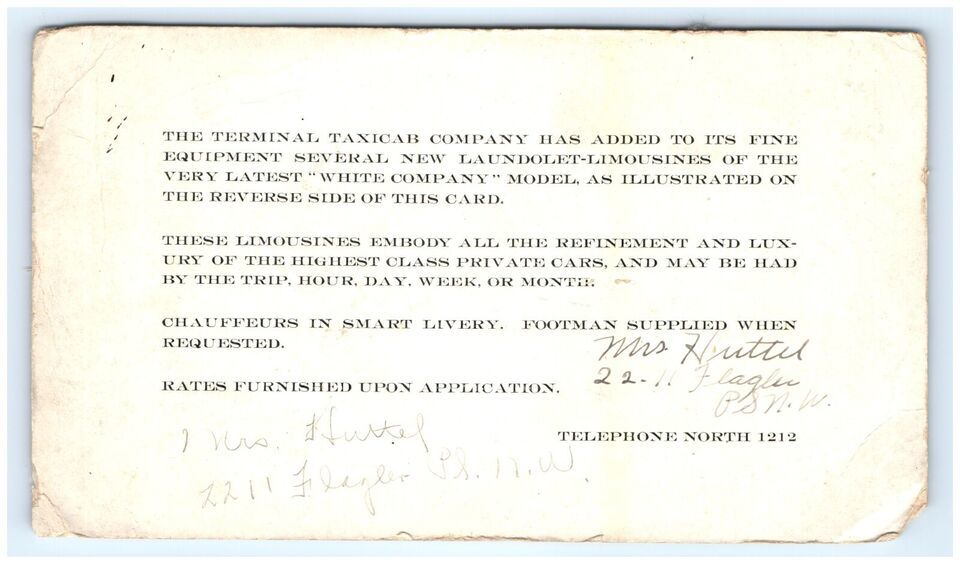 THE TERMINAL TAXICAB COMPANY HAS ADDED TO ITS FINE
EQUIPMENT SEVERAL NEW LAUNDOLET-LIMOUSINES OF THE
VERY LATEST "WHITE COMPANY" MODEL, AS ILLUSTRATED ON
THE REVERSE SIDE OF THIS CARD.
THESE LIMOUSINES EMBODY ALL THE REFINEMENT AND LUX-
URY OF THE HIGHEST CLASS PRIVATE CARS, AND MAY BE HAD
BY THE TRIP, HOUR, DAY, WEEK, OR MONTH.
CHAUFFEURS IN SMART LIVERY. FOOTMAN SUPPLIED WHEN
REQUESTED.
Mrs Huttel
22-11 Flagler
PS N.W.
RATES FURNISHED UPON APPLICATION.
TELEPHONE NORTH 1212
Mrs. Huttel
2211 Flagler Pl. N.W.